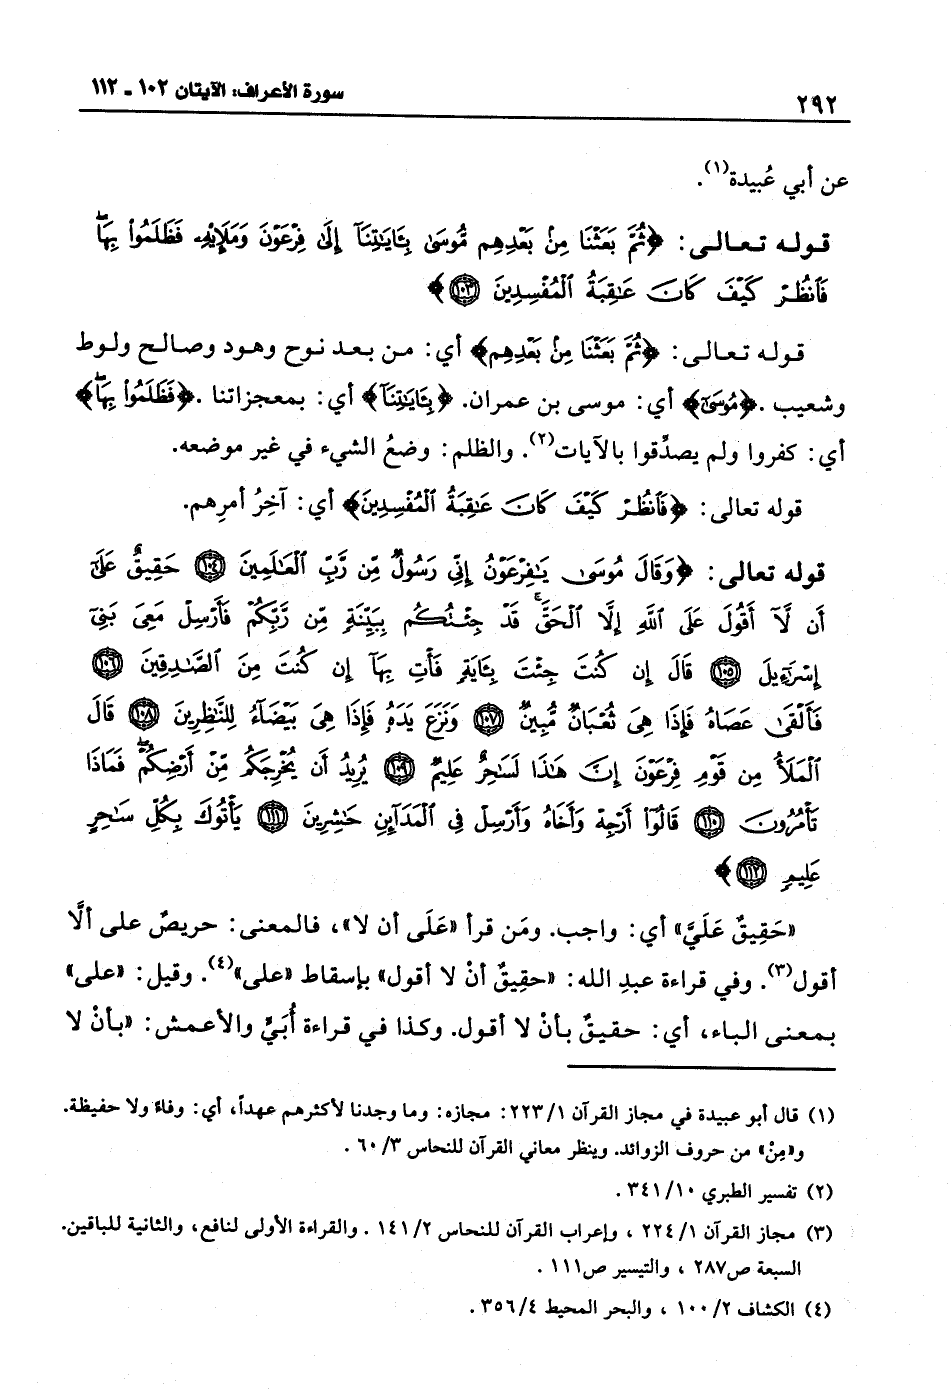 ٢٩٢
سورة الأعراف: الآيتان ١٠٢ - ١١٢
عن أبي عُبيدة(١).
قوله تعالى: ﴿ثُمَّ بَعَثْنَا مِنۢ بَعْدِهِم مُّوسَىٰ بِـَٔايَـٰتِنَآ إِلَىٰ فِرْعَوْنَ وَمَلَإِي۟هِۦ فَظَلَمُوا۟ بِهَا ۖ
فَٱنظُرْ كَيْفَ كَانَ عَـٰقِبَةُ ٱلْمُفْسِدِينَ ١٠٣﴾
قوله تعالى: ﴿ثُمَّ بَعَثْنَا مِنۢ بَعْدِهِم﴾ أي: من بعد نوح وهود وصالح ولوط
وشعيب. ﴿مُوسَىٰ﴾ أي: موسى بن عمران. ﴿بِـَٔايَـٰتِنَآ﴾ أي: بمعجزاتنا. ﴿فَظَلَمُوا۟ بِهَا ۖ﴾
أي: كفروا ولم يصدِّقوا بالآيات(٢). والظلم: وضعُ الشيء في غير موضعه.
قوله تعالى: ﴿فَٱنظُرْ كَيْفَ كَانَ عَـٰقِبَةُ ٱلْمُفْسِدِينَ﴾ أي: آخِرُ أمرِهم.
قوله تعالى: ﴿وَقَالَ مُوسَىٰ يَـٰفِرْعَوْنُ إِنِّى رَسُولٌ مِّن رَّبِّ ٱلْعَـٰلَمِينَ ١٠٤ حَقِيقٌ عَلَىٰٓ
أَن لَّآ أَقُولَ عَلَى ٱللَّهِ إِلَّا ٱلْحَقَّ ۚ قَدْ جِئْتُكُم بِبَيِّنَةٍ مِّن رَّبِّكُمْ فَأَرْسِلْ مَعِىَ بَنِىٓ
إِسْرَٰٓءِيلَ ١٠٥ قَالَ إِن كُنتَ جِئْتَ بِـَٔايَةٍ فَأْتِ بِهَآ إِن كُنتَ مِنَ ٱلصَّـٰدِقِينَ ١٠٦
فَأَلْقَىٰ عَصَاهُ فَإِذَا هِىَ ثُعْبَانٌ مُّبِينٌ ١٠٧ وَنَزَعَ يَدَهُۥ فَإِذَا هِىَ بَيْضَآءُ لِلنَّـٰظِرِينَ ١٠٨ قَالَ
ٱلْمَلَأُ مِن قَوْمِ فِرْعَوْنَ إِنَّ هَـٰذَا لَسَـٰحِرٌ عَلِيمٌ ١٠٩ يُرِيدُ أَن يُخْرِجَكُم مِّنْ أَرْضِكُمْ ۖ فَمَاذَا
تَأْمُرُونَ ١١٠ قَالُوٓا۟ أَرْجِهْ وَأَخَاهُ وَأَرْسِلْ فِى ٱلْمَدَآئِنِ حَـٰشِرِينَ ١١١ يَأْتُوكَ بِكُلِّ سَـٰحِرٍ
عَلِيمٍ ١١٢﴾
«حَقِيقٌ عَلَيَّ» أي: واجب. ومَن قرأ «عَلَى أن لا»، فالمعنى: حريصٌ على ألَّا
أقول(٣). وفي قراءة عبدِ الله: «حقِيقٌ أنْ لا أقول» بإسقاط «على»(٤). وقيل: «على»
بمعنى الباء، أي: حقيقٌ بأنْ لا أقول. وكذا في قراءة أُبَيٍّ والأعمش: «بأنْ لا
(١) قال أبو عبيدة في مجاز القرآن ١/٢٢٣: مجازه: وما وجدنا لأكثرهم عهداً، أي: وفاءً ولا حفيظة.
و«مِنْ» من حروف الزوائد. وينظر معاني القرآن للنحاس ٣/٦٠.
(٢) تفسير الطبري ١٠/٣٤١.
(٣) مجاز القرآن ١/٢٢٤، وإعراب القرآن للنحاس ٢/١٤١. والقراءة الأولى لنافع، والثانية للباقين.
السبعة ص٢٨٧، والتيسير ص١١١.
(٤) الكشاف ٢/١٠٠، والبحر المحيط ٤/٣٥٦.